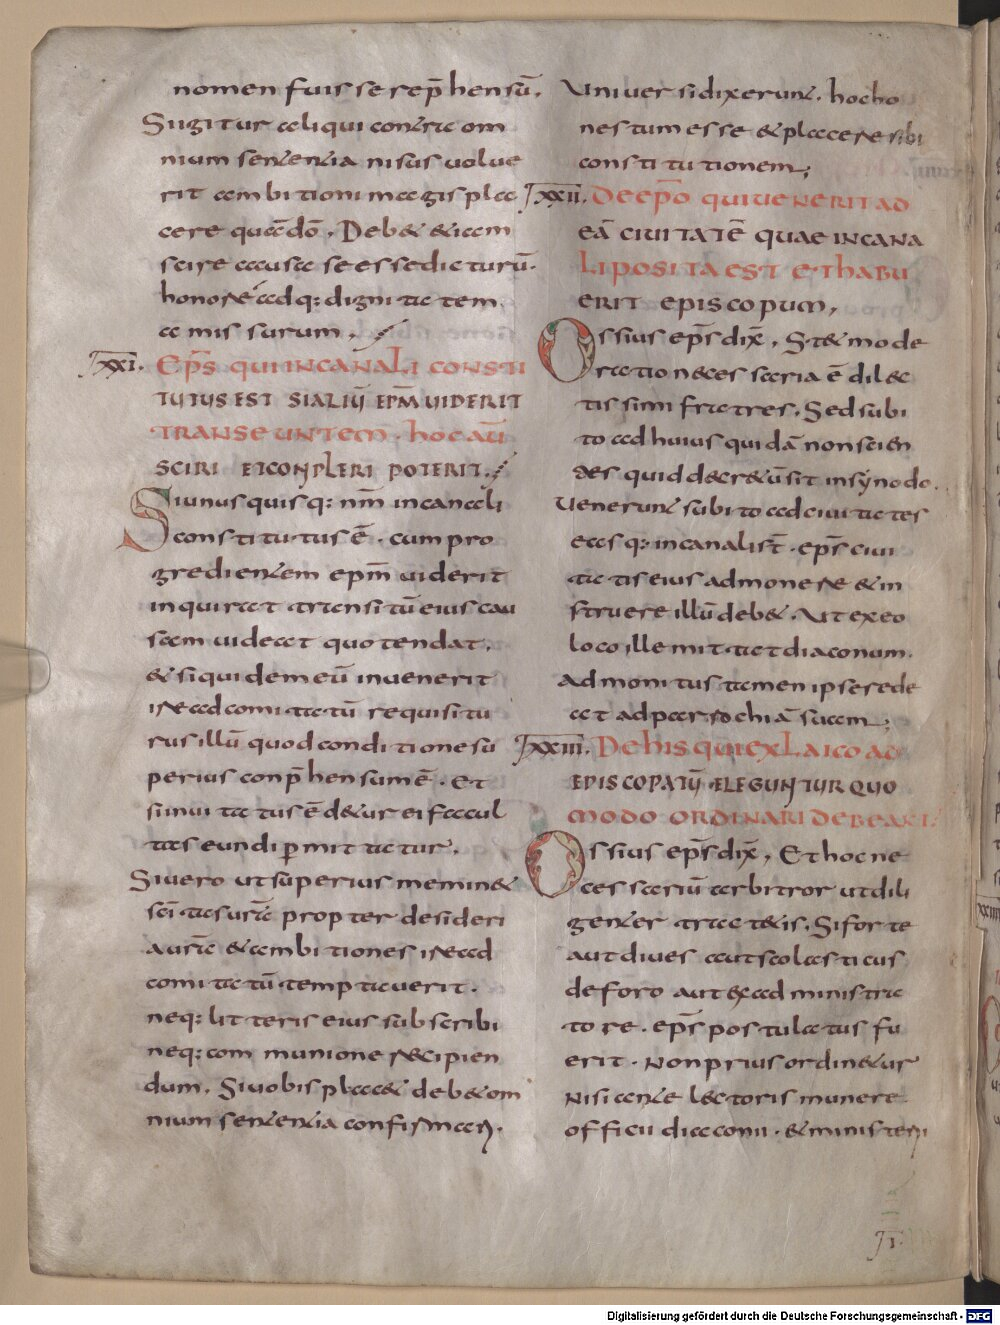 nomen fuisse rep̄hensū.
Siigitur aliqui contra om
nium sententia nisus uolue
rit ambitioni magis pla
cere quā dō. Deb& & iam
scire causa se esse dicturū.
honore ad q: dignitatem
amissurum.
XXI. Ep̄s qui in canali consti
tutus est si aliū ep̄m uiderit
transeuntem. hoc aū
sciri et conpleri poterit.
Siunusquisq: nr̄m in canali
constitutus ē. cum pro
gredientem ep̄m uiderit
inquirat transitū eius cau
sam uideat quo tendat.
& siquidem eū inuenerit
ire ad comitatū requisitu
rus illū quod conditione su
perius conp̄hensum ē. Et
si inuitatus ē d&ur ei facul
tas eundi p̄mittatur.
Siuero ut superius memin&
sc̄i tas ur̄a propter desideri
a ur̄a & ambitiones ire ad
comitatū temptauerit.
neq: litteris eius subscribi
neq: communione recipien
dum. Si uobis plac& deb& om
nium sententia confirmari.
Uniuersi dixerunt. hoc ho
nestum esse & placere sibi
constitutionem;
XXII. De ep̄o qui uenerit ad
eā ciuitatē quae in cana
li posita est et habu
erit episcopum,
Ossius ep̄s dix̄. St& mode
ratio necessaria ē dilec
tissimi fratres. Sed subi
to ad huius quidā non scien
tes quid decr&ū sit in synodo.
Uenerunt subito ad ciuitates
eas q: in canali st̄. ep̄s ciui
tatis eius admonere & in
struere illū deb&. Ut ex eo
loco ille mittat diaconum.
Admonitus tamen ipse rede
at ad parrochiā suam;
XXIII. De his qui ex laico ad
episcopatū eleguntur quo
modo ordinari debeant
Ossius ep̄s dix̄, Et hoc ne
cessariū arbitror ut dili
genter tract&is. Si forte
aut diues aut scolasticus
de foro aut ex administra
tore. ep̄s postulatus fu
erit. Non prius ordin&ur
nisi ante lectoris munere
officii diaconii. & ministerii
Digitalisierung gefördert durch die Deutsche Forschungsgemeinschaft - DFG